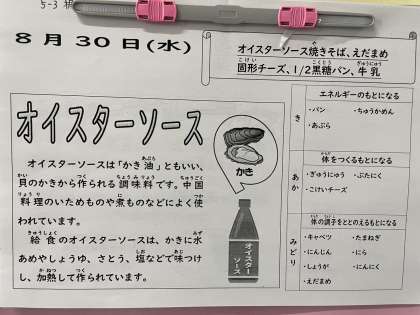 5-3
8月30日(水)
オイスターソース焼きそば、えだまめ
固形チーズ、1/2黒糖パン、牛乳
オイスターソース
オイスターソースは「かき油」ともいい、
貝のかきから作られる調味料です。中国
料理のいためものや煮ものなどによく使
われています。
給食のオイスターソースは、かきに水
あめやしょうゆ、さとう、塩などで味つけ
し、加熱して作られています。
かき
オイスターソース
き
エネルギーのもとになる
・パン ・ちゅうかめん
・あぶら
あか
体をつくるもとになる
・ぎゅうにゅう ・ぶたにく
・こけいチーズ
みどり
体の調子をととのえるもとになる
・キャベツ ・たまねぎ
・にんじん ・にら
・しょうが ・にんにく
・えだまめ